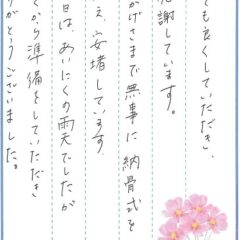 ても良くしていただき、
感謝しています。
かげさまで無事に納骨式を
え、安堵しています
日は、あいにくの雨天でしたが
くから準備をしていただき
がとうございました。